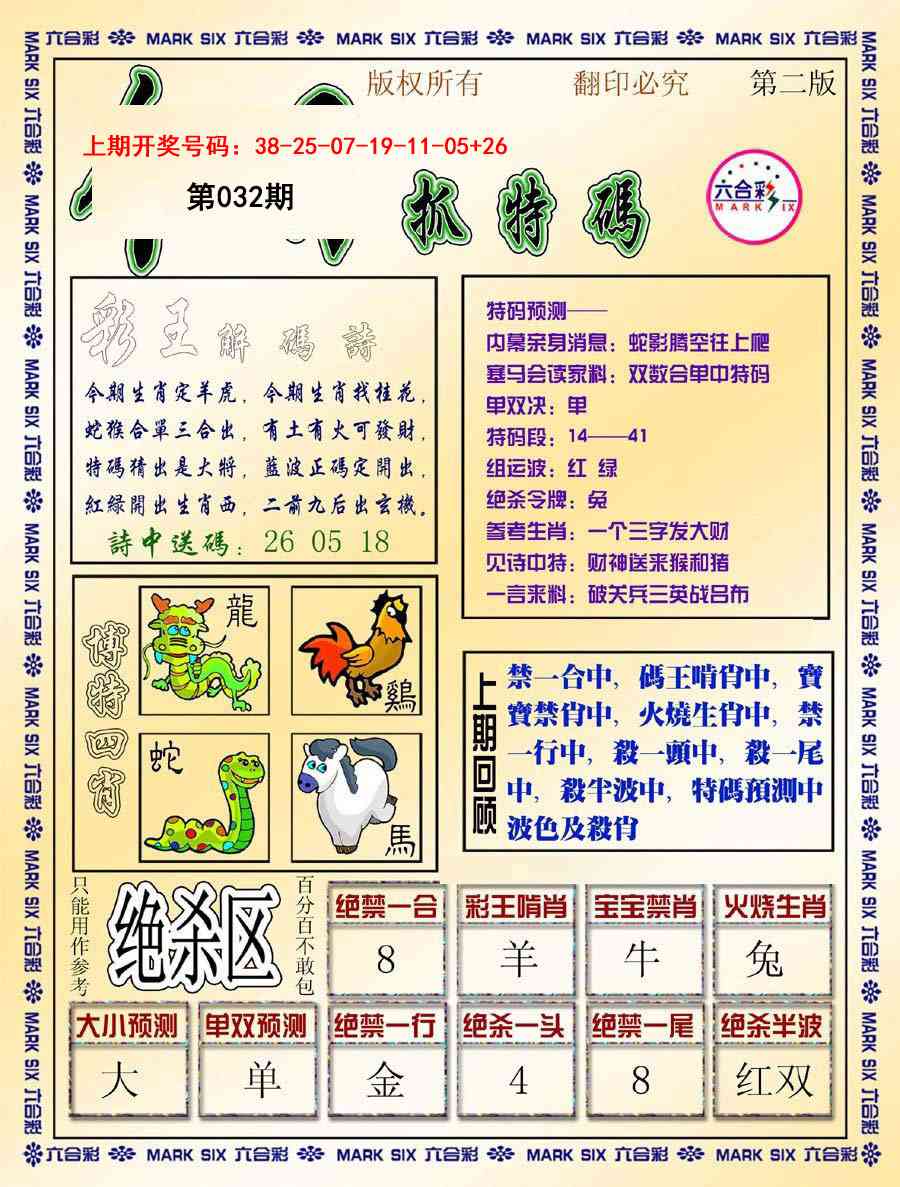 六合彩 MARK SIX 六合彩 MARK SIX 六合彩 MARK SIX 六合彩 MARK SIX 六合彩
版权所有 翻印必究 第二版
上期开奖号码：38-25-07-19-11-05+26
第032期
抓特碼
六合彩
MARK SIX
彩王解碼詩
今期生肖定羊虎，今期生肖找桂花，
蛇猴合單三合出，有土有火可發財，
特碼猜出是大將，藍波正碼定開出，
紅緑開出生肖西，二前九后出玄機。
詩中送碼：26 05 18
特码预测——
内幕亲身消息：蛇影腾空往上爬
塞马会读家料：双数合单中特码
单双决：单
特码段：14——41
组运波：红 绿
绝杀令牌：兔
参考生肖：一个三字发大财
见诗中特：财神送来猴和猪
一言来料：破关兵三英战吕布
博特四肖
龍
鷄
蛇
馬
上期回顾
禁一合中，碼王啃肖中，寶
寶禁肖中，火燒生肖中，禁
一行中，殺一頭中，殺一尾
中，殺半波中，特碼預測中
波色及殺肖
只能用作参考
绝杀区
百分百不敢包
绝禁一合 彩王啃肖 宝宝禁肖 火烧生肖
8 羊 牛 兔
大小预测 单双预测 绝禁一行 绝杀一头 绝禁一尾 绝杀半波
大 单 金 4 8 红双
六合彩 MARK SIX 六合彩 MARK SIX 六合彩 MARK SIX 六合彩 MARK SIX 六合彩